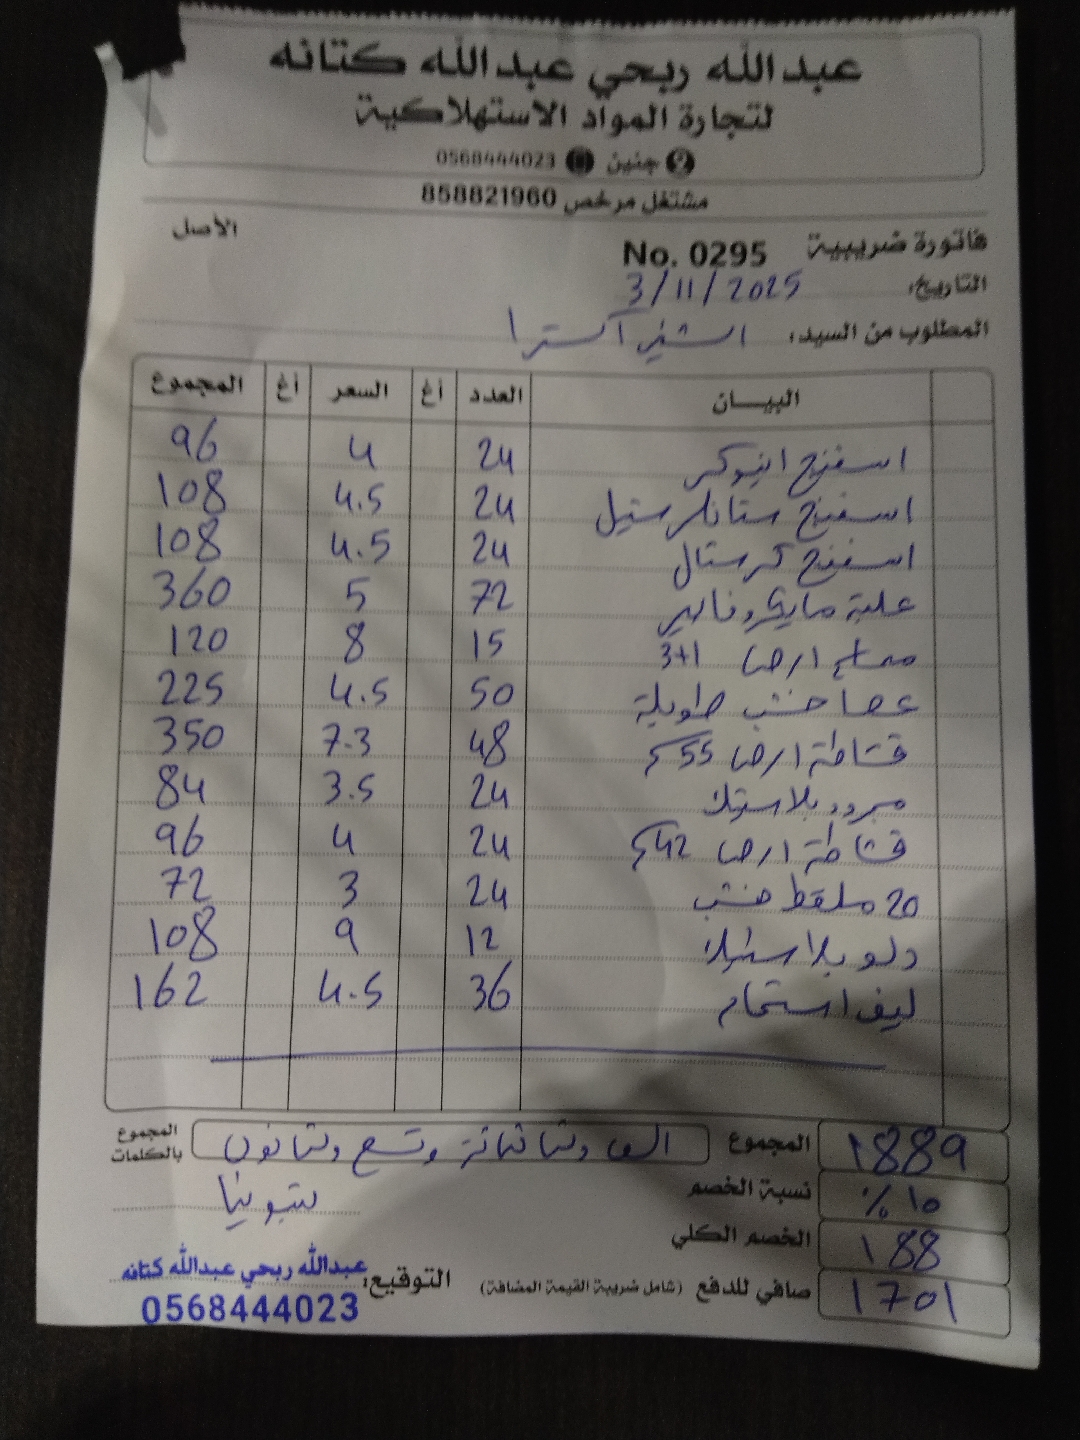 عبدالله ربحي عبدالله كتانه
لتجارة المواد الاستهلاكية
جنين 0568444023
مشتغل مرخص 858821960
فاتورة ضريبية No. 0295 الأصل
التاريخ: 3/11/2025
المطلوب من السيد: اكسترا
البيان العدد أغ السعر أغ المجموع
اسفنج 24 4 96
اسفنج ستانلس ستيل 24 4.5 108
اسفنج كرستال 24 4.5 108
علبة مايكروفايبر 72 5 360
ممسحة ارض 3+1 15 8 120
عصا خشب طويلة 50 4.5 225
قشاطة ارض 55 سم 48 7.3 350
مجرود بلاستيك 24 3.5 84
قشاطة ارض 42 سم 24 4 96
20 ملقط خشب 24 3 72
دلو بلاستيك 12 9 108
ليف استحمام 36 4.5 162
المجموع 1889
المجموع بالكلمات الف وثمانمائة وتسع وثمانون
نسبة الخصم 10%
الخصم الكلي 188
صافي للدفع (شامل ضريبة القيمة المضافة) 1701
التوقيع: عبدالله ربحي عبدالله كتانه
0568444023